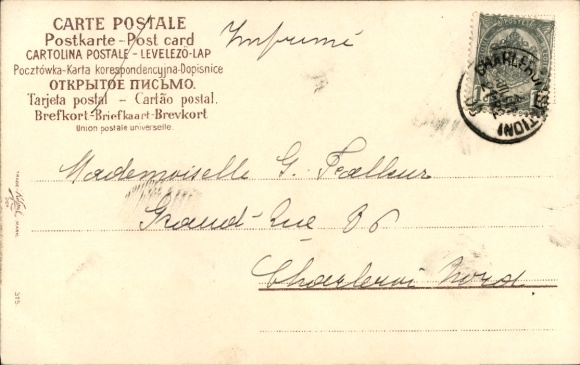 CARTE POSTALE
Postkarte - Post card
CARTOLINA POSTALE - LEVELEZŐ-LAP
Pocztówka-Karta korespondencyjna-Dopisnice
ОТКРЫТОЕ ПИСЬМО.
Tarjeta postal - Cartão postal.
Brefkort-Briefkaart-Brevkort
Union postale universelle.
Imprimé
CHARLEROI
STATION
Mademoiselle G.
Grand-Rue 86
Charleroi Nord.
315